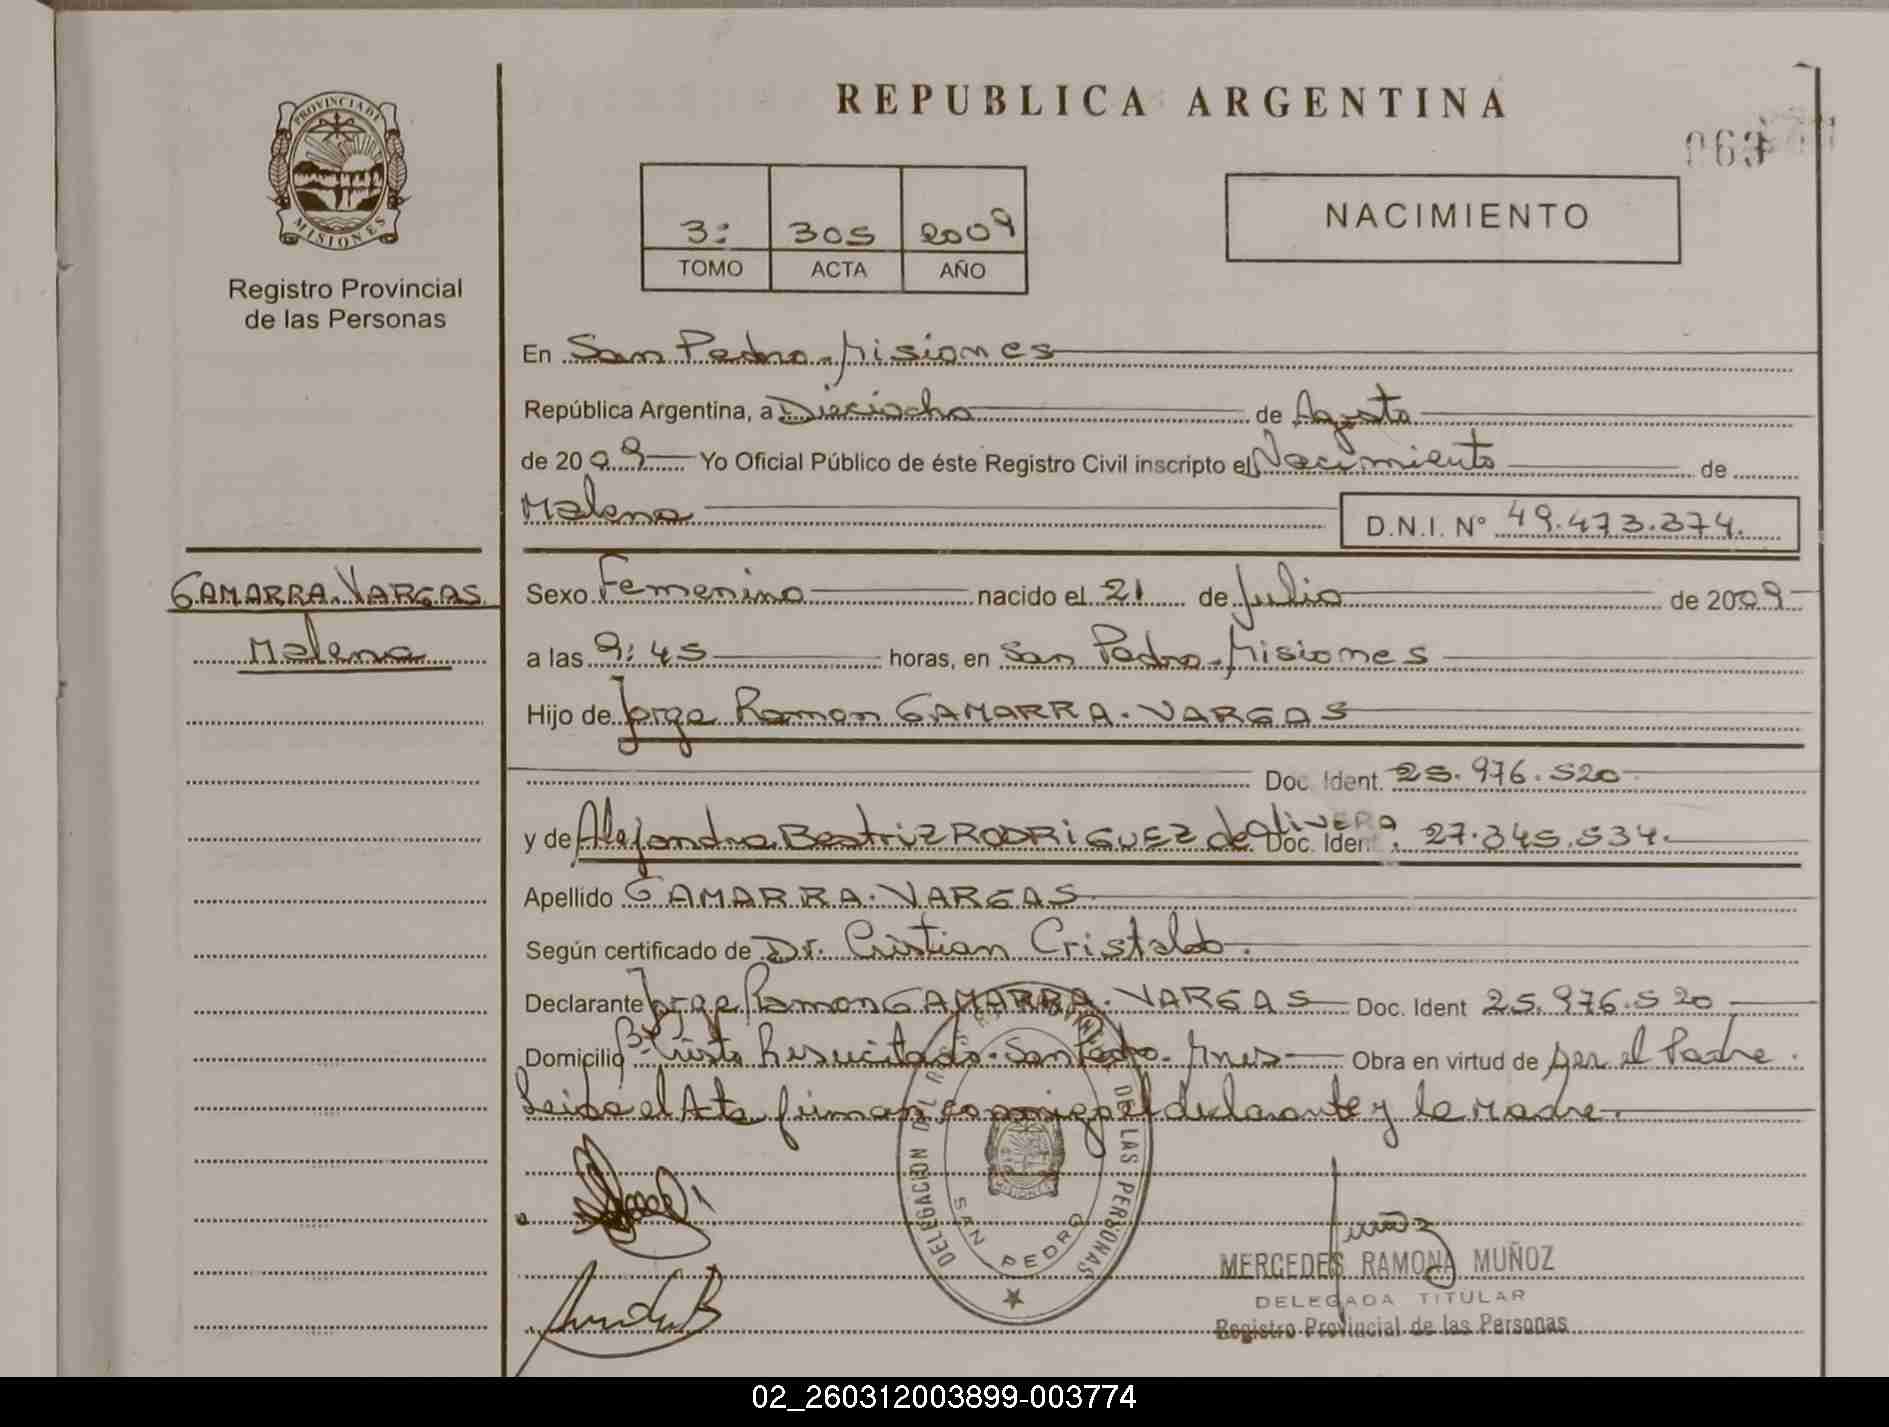 REPUBLICA ARGENTINA
063
PROVINCIA DE
MISIONES
Registro Provincial
de las Personas
3: 305 2009
TOMO ACTA AÑO
NACIMIENTO
En San Pedro. Misiones
República Argentina, a Dieciocho de Agosto
de 2009 Yo Oficial Público de éste Registro Civil inscripto el Nacimiento de
Malena D.N.I. N° 49.473.374.
GAMARRA.VARGAS
Malena
Sexo Femenino nacido el 21 de Julio de 2009
a las 9:45 horas, en San Pedro. Misiones
Hijo de Jorge Ramon GAMARRA. VARGAS
Doc. Ident. 25.976.520
y de Alejandra Beatriz RODRiGUEZ de OliVERA Doc. Ident. 27.345.534.
Apellido GAMARRA.VARGAS
Según certificado de Dr. Cristian Cristaldo.
Declarante Jorge Ramon GAMARRA. VARGAS Doc. Ident 25.976.520
Domicilio B° Cristo Resucitado. San Pedro. Mnes Obra en virtud de ser el Padre.
Leida el Acta firman conmigo el declarante y la Madre.
DELEGACION DE LAS PERSONAS
MISIONES
SAN PEDRO
Muñoz
MERCEDES RAMONA MUÑOZ
DELEGADA TITULAR
Registro Provincial de las Personas
02_260312003899-003774